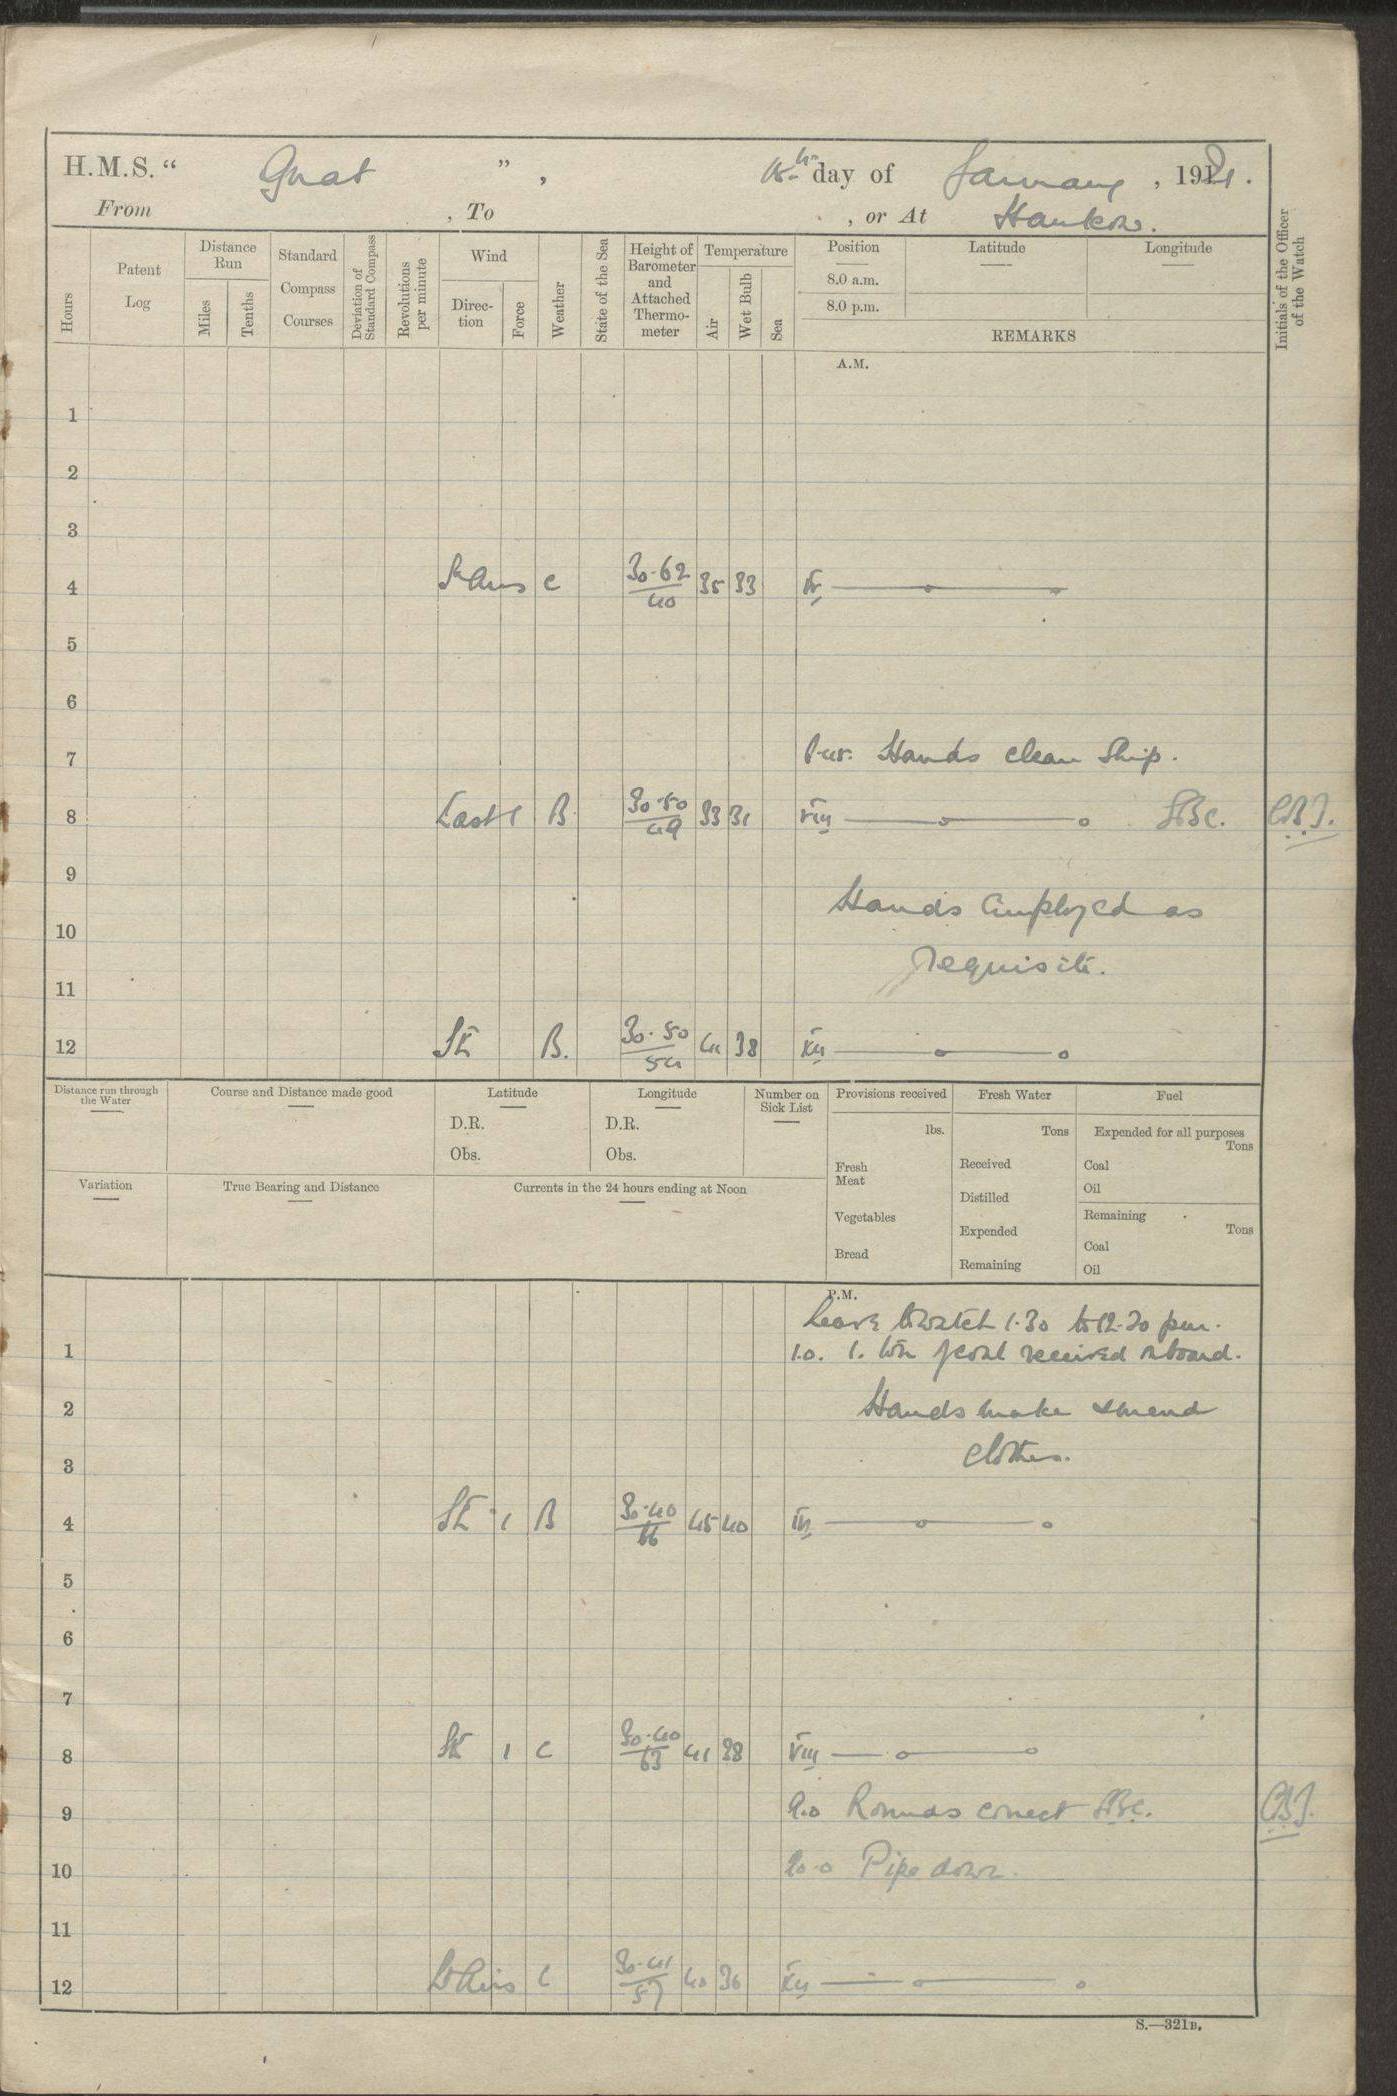 H.M.S. “ Gnat ” , day of January , 1921.
From , To , or At Hankow.
Hours
Patent Log
Distance Run
Miles
Tenths
Standard Compass Courses
Deviation of Standard Compass
Revolutions per minute
Wind
Direc-tion
Force
Weather
State of the Sea
Height of Barometer and Attached Thermo-meter
Temperature
Air
Wet Bulb
Sea
Position
8.0 a.m.
8.0 p.m.
Latitude
Longitude
REMARKS
Initials of the Officer of the Watch
A.M.
1
2
3
4 c 30·62 / 40 35 33 IV
5
6
7 Hands clean Ship.
8 East 1 B 30·50 / 49 33 31 VIII
9
Hands employed as
10
requisite.
11
12 SE B. 30·50 / 54 44 38 XII
Distance run through the Water
Course and Distance made good
Latitude
D.R.
Obs.
Longitude
D.R.
Obs.
Number on Sick List
Provisions received
lbs.
Fresh Meat
Vegetables
Bread
Fresh Water
Tons
Received
Distilled
Expended
Remaining
Fuel
Expended for all purposes
Tons
Coal
Oil
Remaining
Tons
Coal
Oil
Variation
True Bearing and Distance
Currents in the 24 hours ending at Noon
P.M.
Leave to watch 1.30 to pm.
1 1.0. 1. ton of coal received onboard.
2 Hands make & mend
3 clothes.
4 SE 1 B 30·40 / 66 45 40 IV
5
6
7
8 SE 1 c 30·40 / 63 41 38 VIII
9 9.0 Rounds correct
10 10.0 Pipe down.
11
12 c 30·41 / 57 40 36 XII
S.—321B.